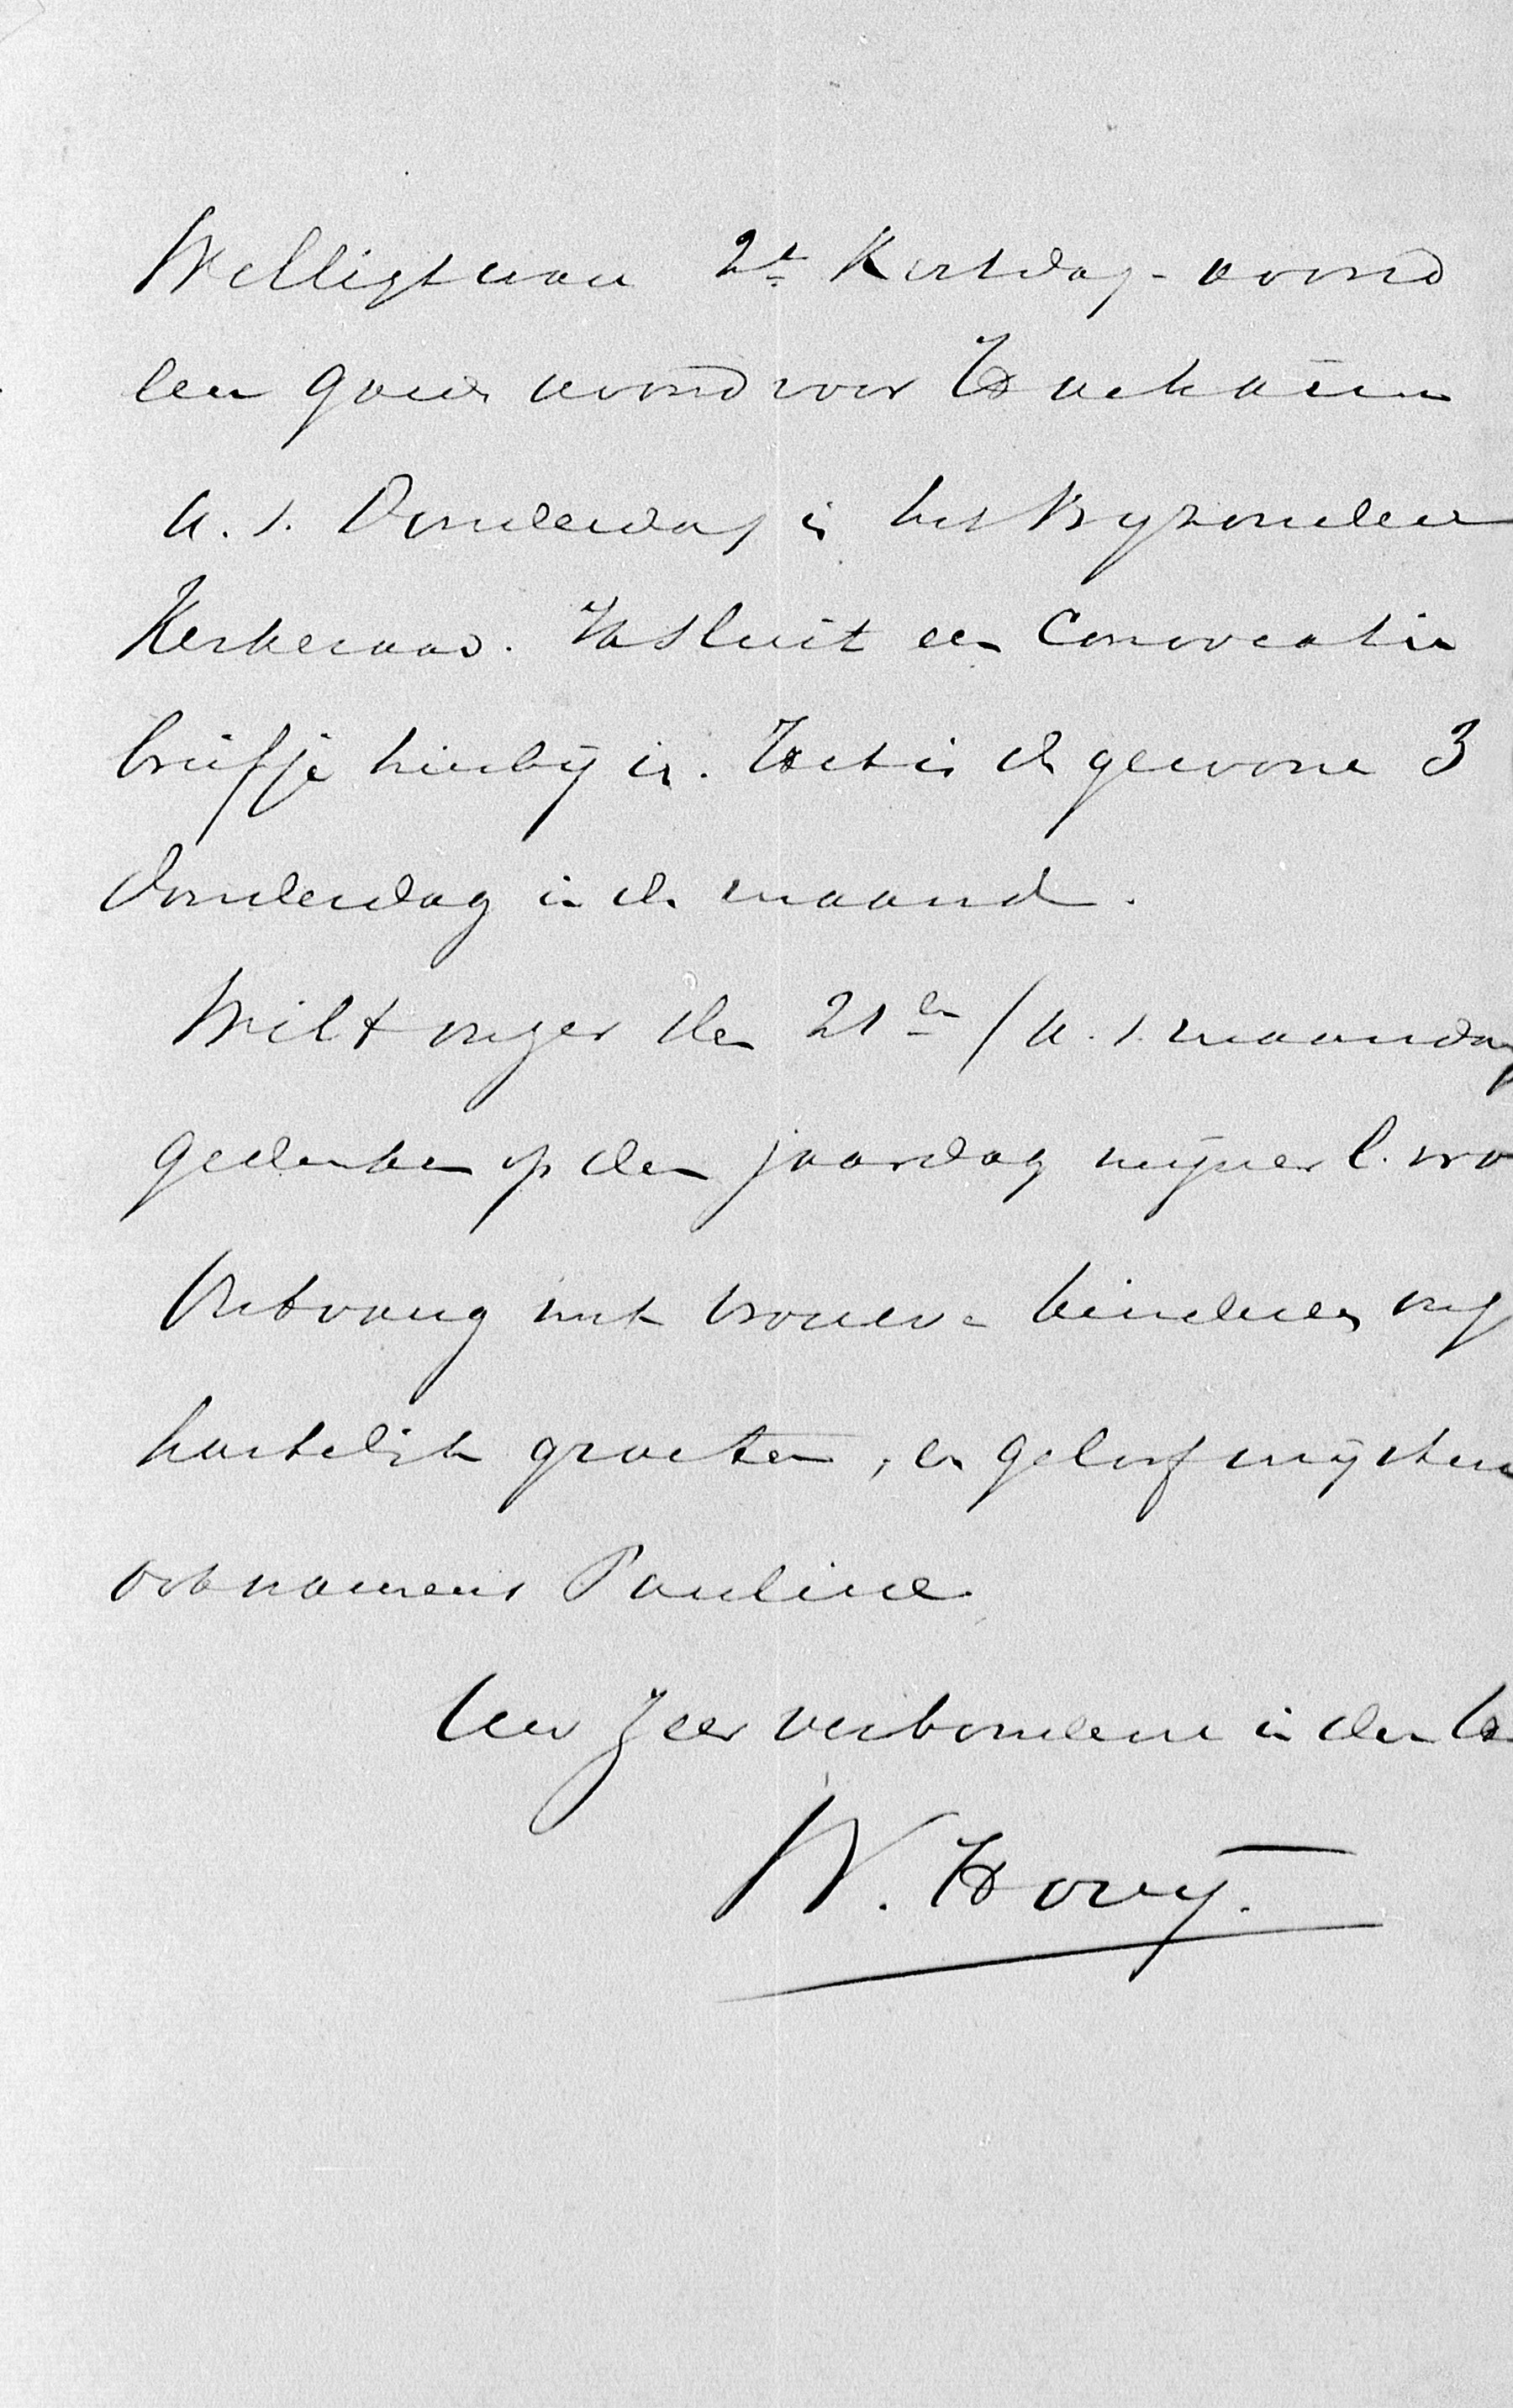 Welligt ware 2e Kerstdag-avond
een goede avond voor Hackaim
a.s. Donderdag is het Byzondere
Kerkeraad. Ik sluit een Convocatie
briefje hierbij in. Het is de gewone 3
donderdag in de maand.
Wilt onzer den 21en / a.s. maandag
gedenken op den jaardag mijner l. vro
Ontvang met vrouw en kinderen onze
hartelijke groeten, en geloof mij steeds
ook namens Pauline
Uw zeer verbondene in den He
W. Hovy.